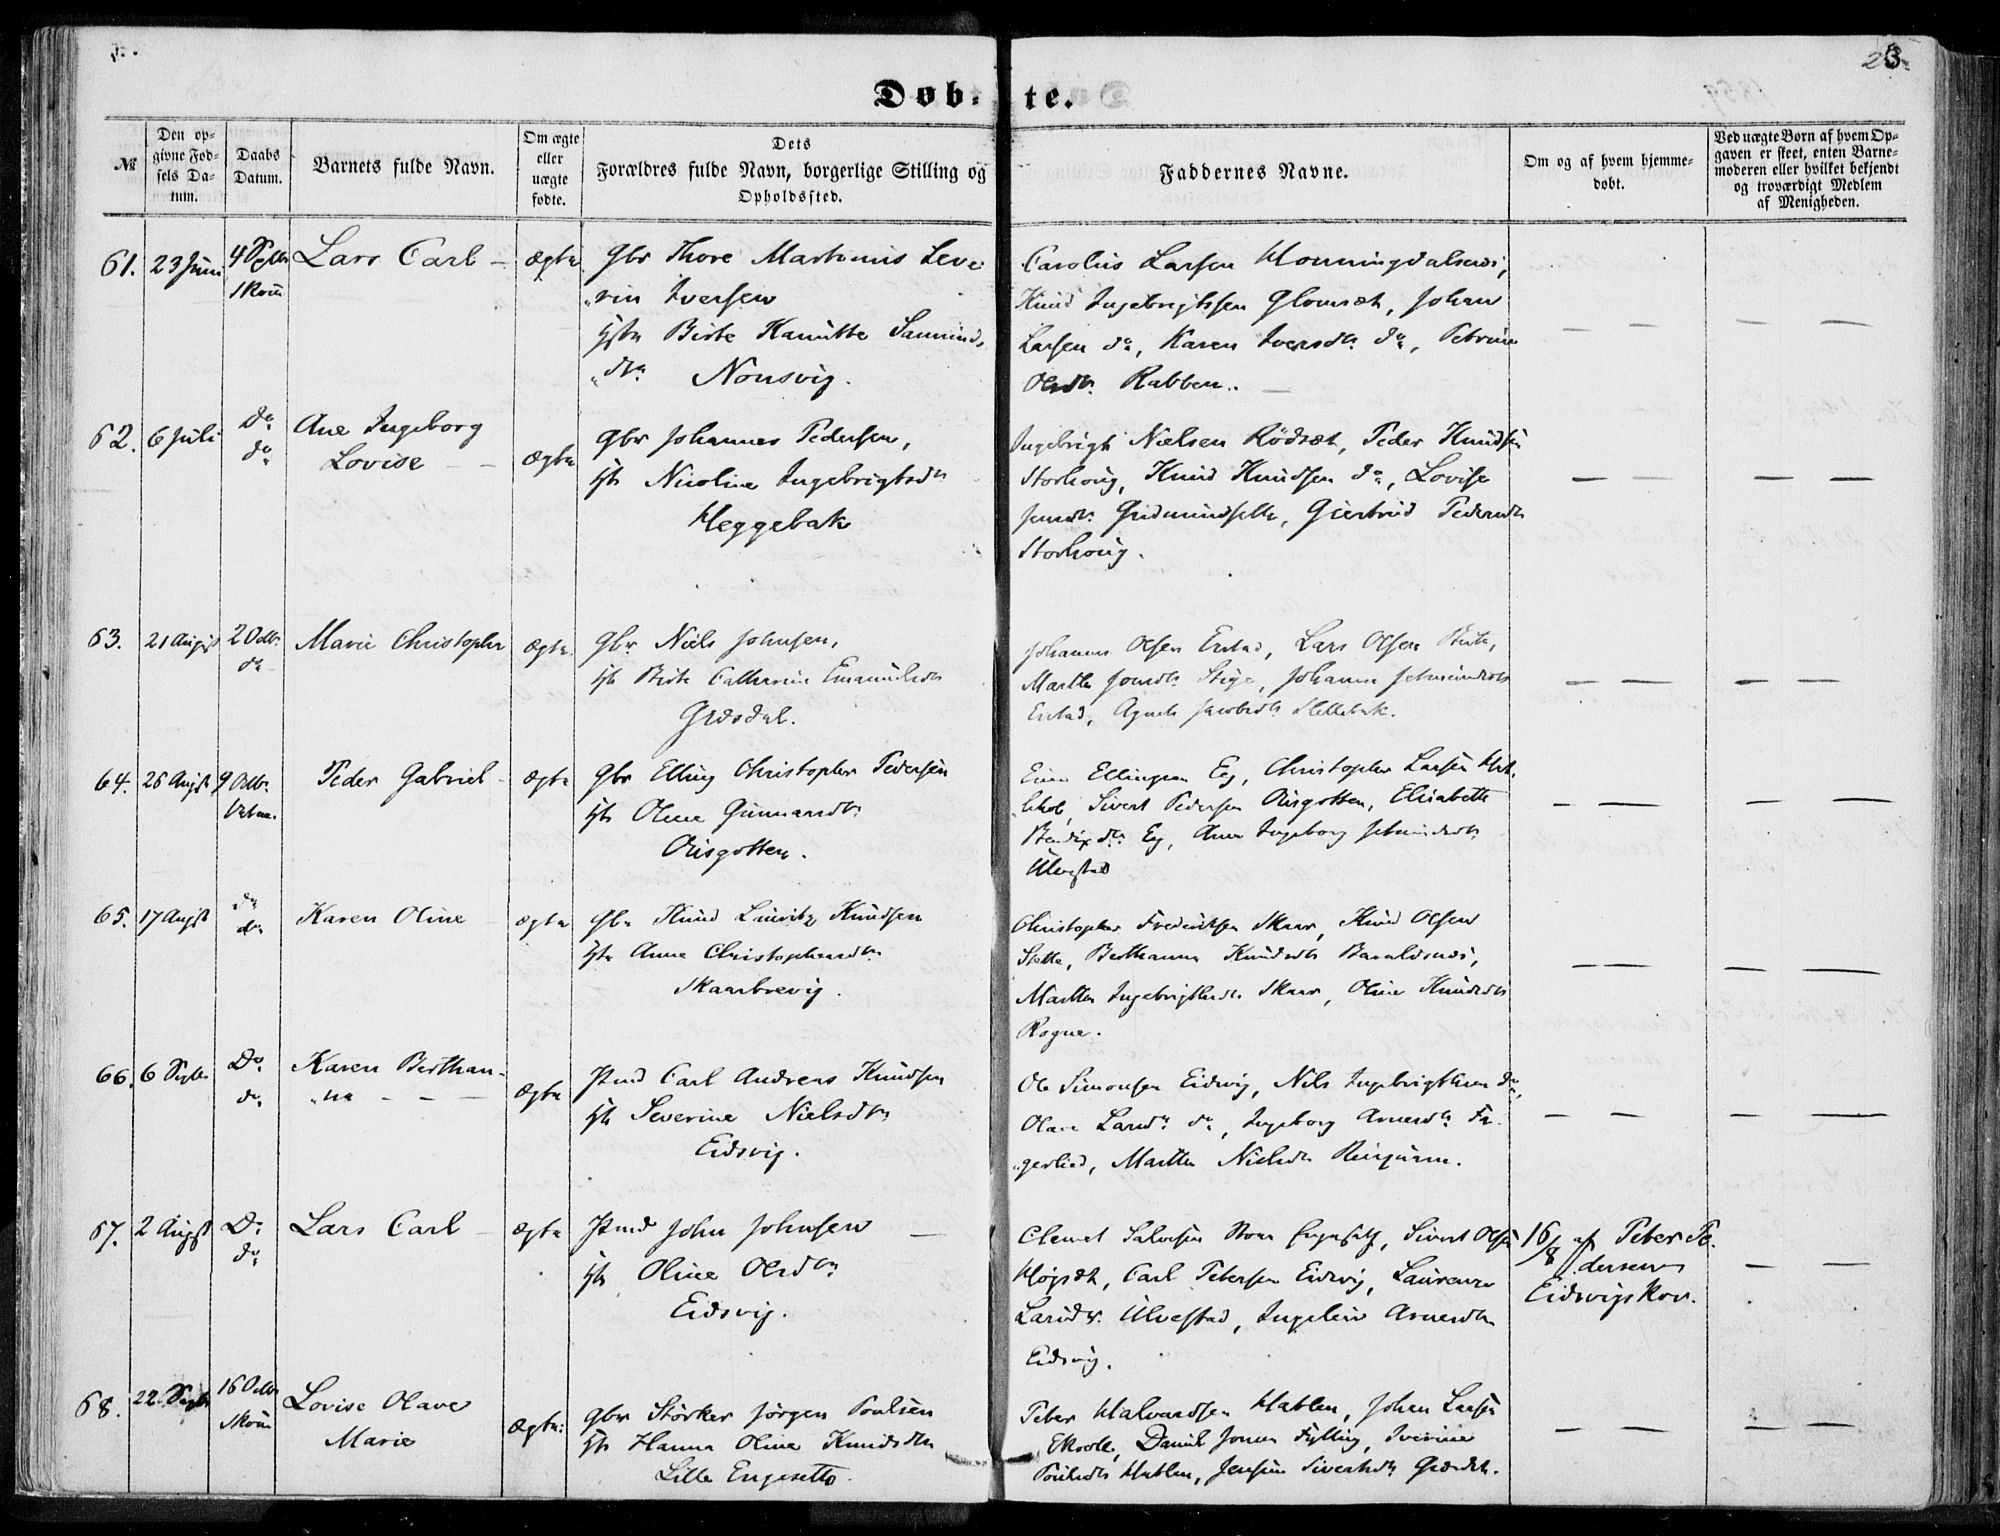 23.
Døbte.
№
Den op-
givne Fød-
sels Da-
tum.
Daabs
Datum.
Barnets fulde Navn.
Om ægte
eller
uægte
fødte.
Dets
Forældres fulde Navn, borgerlige Stilling og
Opholdssted.
Faddernes Navne.
Om og af hvem hjemme-
døbt.
Ved uægte Børn af hvem Op-
gaven er skeet, enten Barne-
moderen eller hvilket bekjendt
og troværdigt Medlem
af Menigheden.
61. 23 Juni 4 Sptbr Lars Carl – ægte Gbr Thore Martinus Seve
"rin Iversen
Birte Hanutte
Nonsvig.
Carolus Larsen Honningdalsnes,
Knud Ingebrigtsen Glomsæt, Johan
Larsen do, Karen Iversdtr do, Petrine
Olsdtr Rabben.
62. 6 Juli do
do
Ane Ingeborg
Lovise – – ægte Gbr Johannes Pedersen,
Nicoline Ingebrigtsdtr
Heggebak
Ingebrigt Nielsen Rødsæt, Peder Knudsen
Storhoug, Knud Knudsen do, Lovise
Giertrud Pedersdtr
Storhoug.
63. 21 August 2 Octbr
do
Marie Christophe ægte Gbr Niels Johnsen,
Birte Catharine Emanuelsdtr
Giæsdal.
Johannes Olsen Erstad, Lars Olsen
Marthe Jonsdtr Stige, Johanne
Erstad, Agnete Jacobsdtr Slettebak.
64. 26 Augst 9 Octbr
Vatne.
Peder Gabriel – ægte Gbr Elling Christopher Pedersen
Oline Gunnarsdtr
Ousgotten.
Ellingsen Eg, Christopher Larsen
Sivert Pedersen Ousgotten, Elisabeth
Eg, Anne Ingeborg
Ulvestad
65. 17 Augst do
do
Karen Oline – ægte Gbr Knud Lauritz Knudsen
Anne Christophersdtr
Skaarbrevig.
Christopher Fredriksen Skaar, Knud Olsen
Slette, Berthanna Knudsdtr Baraldsnes,
Marthe Ingebrigtsdtr Skaar, Oline Knudsdtr
Rogne.
66. 6 Sptbr Do
do
Karen Berthan-
"na – – – ægte Carl Andreas Knudsen
Severine Nielsdtr
Eidsvig.
Ole Simonsen Eidsvig, Nils Ingebrigtsen do,
Olave Larsdtr do, Ingeborg Arnesdtr Fa-
"gerlied, Marthe Nielsdtr
67. 2 Augst Do
do
Lars Carl – ægte John Johnsen –
Oline Olsdtr
Eidsvig.
Clemet Salvesen Sivert Olsen
Højsæt, Carl Petersen Eidsvig, Laurence
Larsdtr Ulvestad, Ingeline Arnesdtr
Eidsvig.
16/8 af Peter Pe-
dersen
Eidsvigskov.
68. 22 Septbr 16 Octbr
Skoue
Lovise Olave
Marie
ægte: Gbr Størker Jørgen Poulsen
Hanna Oline Knudsdtr
Lille Engesette.
Peter Halvardsen Hatlen, Johan Larsen
Daniel Jonsen Fylling, Iverine
Poulsdtr Hatlen, Sivertsdtr